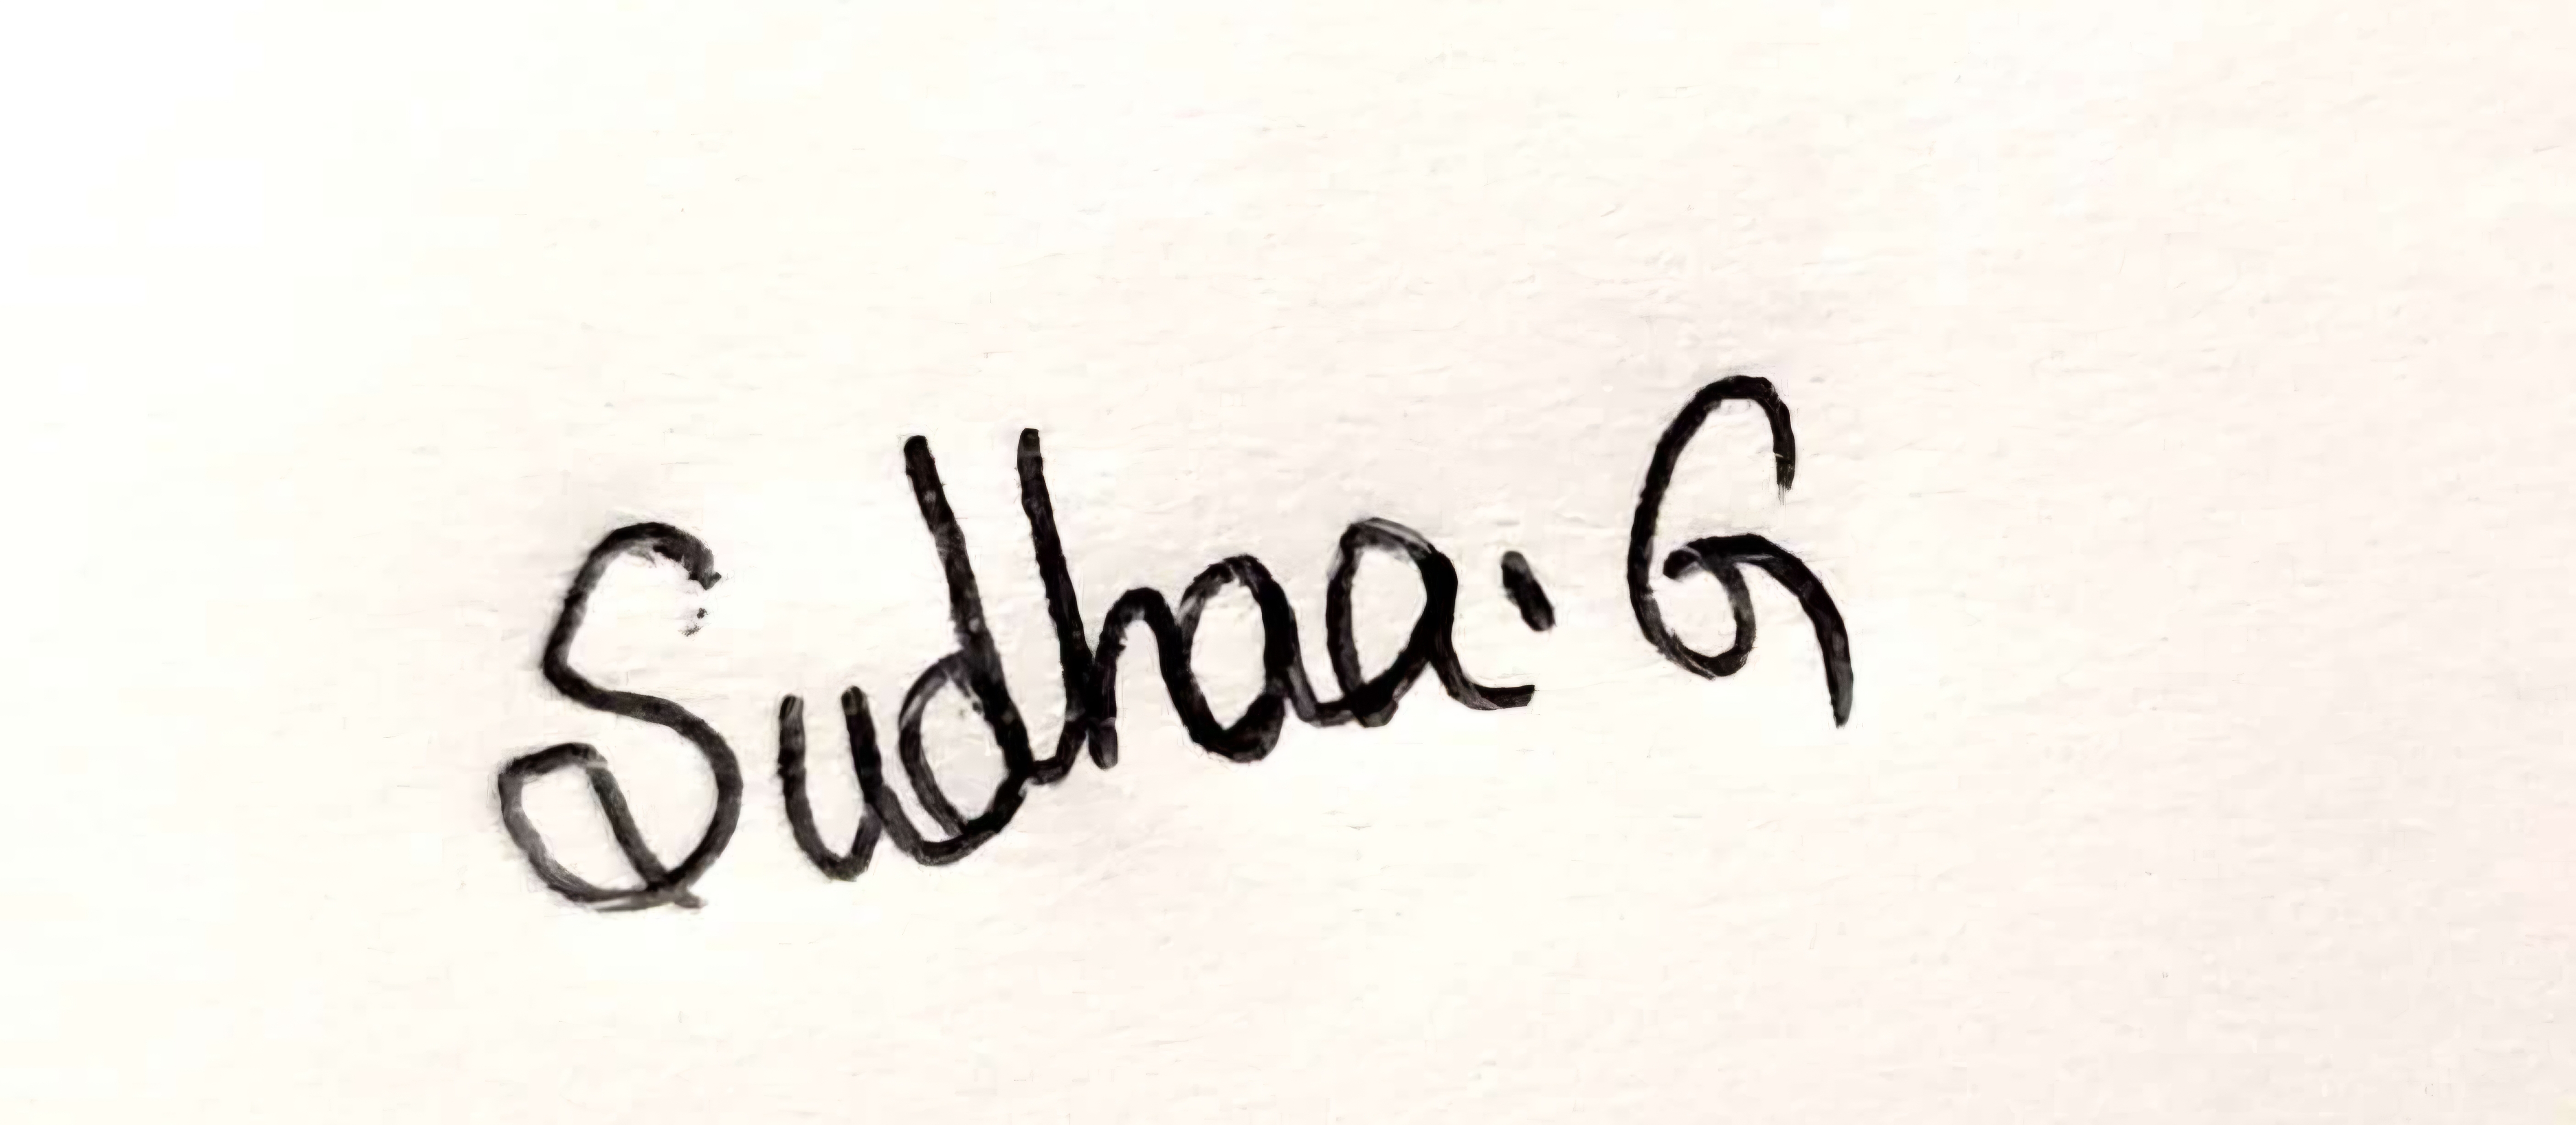 Sudhaa. G